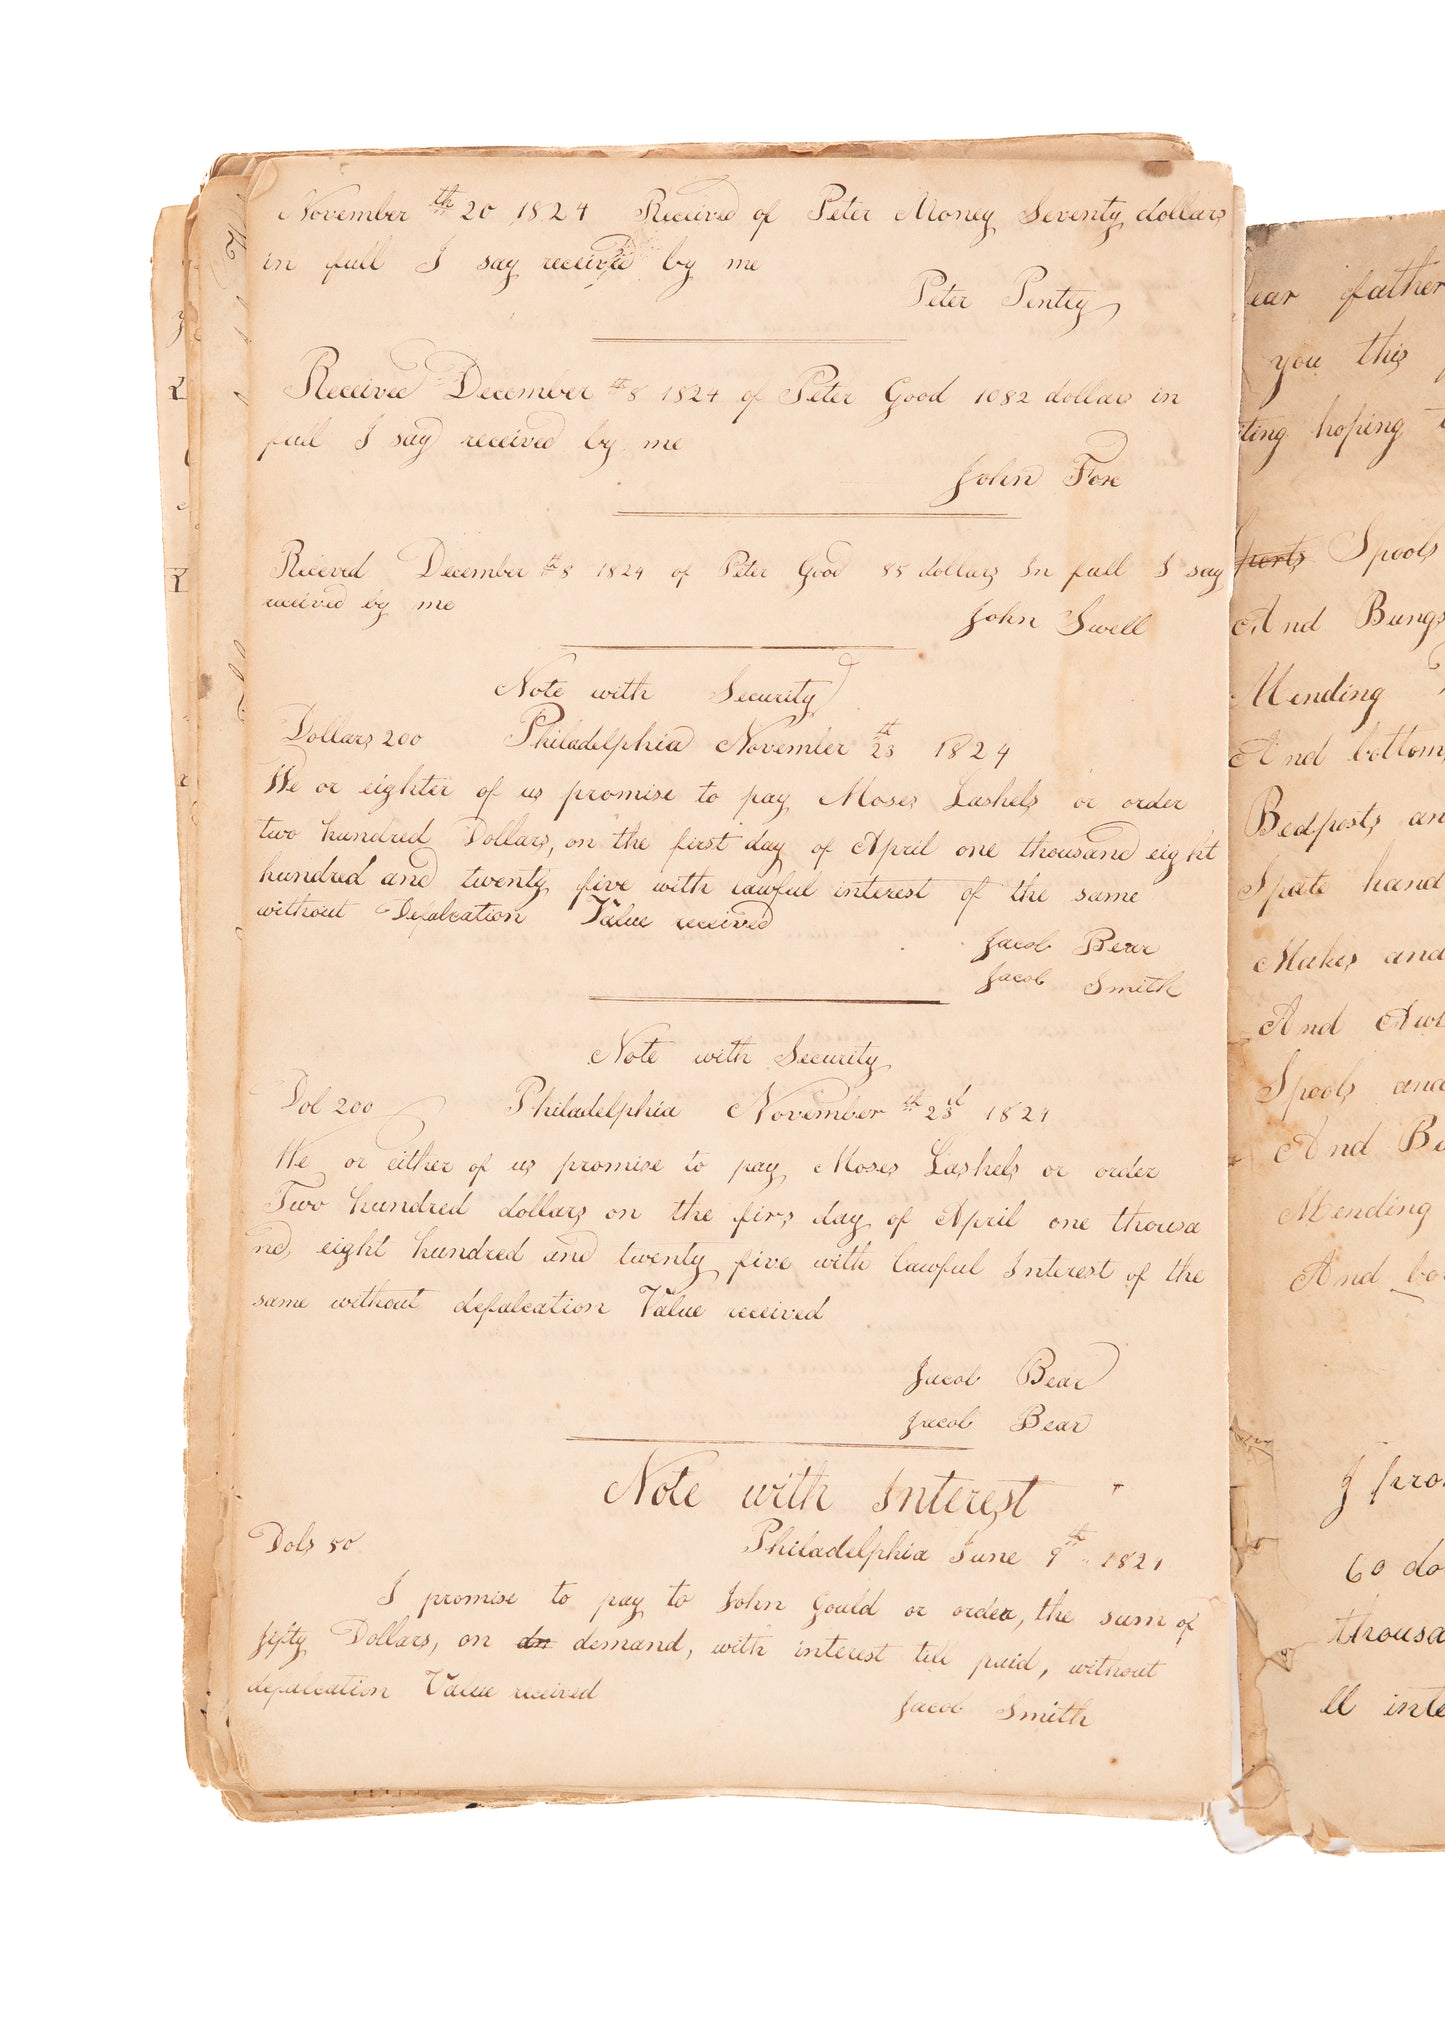 November th 20 1824 Received of Peter Money Seventy dollars
in full I say received by me
Peter Pentey
Received December th 8 1824 of Peter Good 1082 dollars in
full I say received by me
John Foxe
Recieved December th 8 1824 of Peter Good 85 dollars In full I say
received by me
John Swell
Note with Security
Dollars 200 Philadelphia November th 23 1824
We or eighter of us promise to pay Moses Lashels or order
two hundred Dollars, on the first day of April one thousand eight
hundred and twenty five with lawful interest of the same
without Defalcation Value received
Jacob Bear
Jacob Smith
Note with Security
Dol 200 Philadelphia November th 23d 1824
We or either of us promise to pay Moses Lashels or order
Two hundred dollars on the firs day of April one thousa
nd eight hundred and twenty five with lawful Interest of the
same without defalcation Value received
Jacob Bear
Jacob Bear
Note with Interest
Dols 50 Philadelphia June 9th 1824
I promise to pay to John Gould or order, the sum of
fifty Dollars, on dn demand, with interest till paid, without
defalcation Value received
Jacob Smith
ear father
you this
ting hoping
Spools
And Bungs
Mending
And bottom
Bedposts an
Spate hand
Makes and
And Awl
Spools and
And Be
Mending
And bo
I pro
60 do
thousa
ll inte